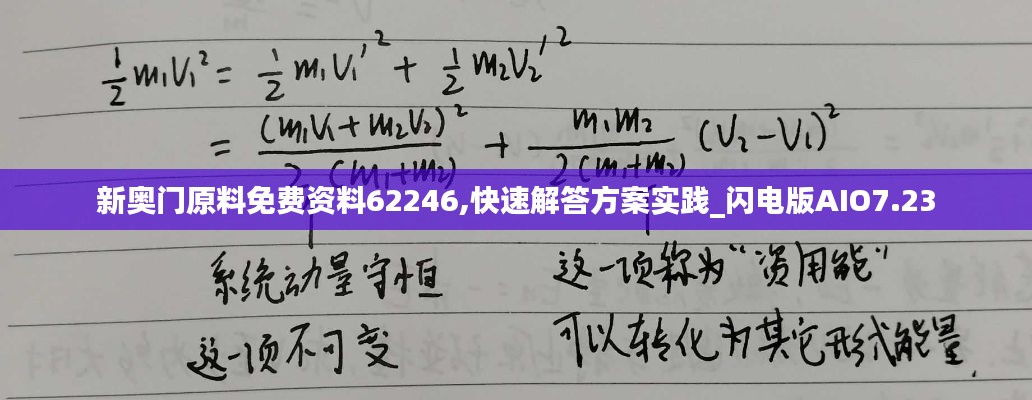 ½m₁V₁² = ½m₁V₁'² + ½m₂V₂'²
= (m₁V₁+m₂V₂)²/2(m₁+m₂) + m₁m₂/2(m₁+m₂) (V₂-V₁)²
新奥门原料免费资料62246,快速解答方案实践_闪电版AIO7.23
系统动量守恒 这一项称为“资用能”
这一项不可变 可以转化为其它形式能量.